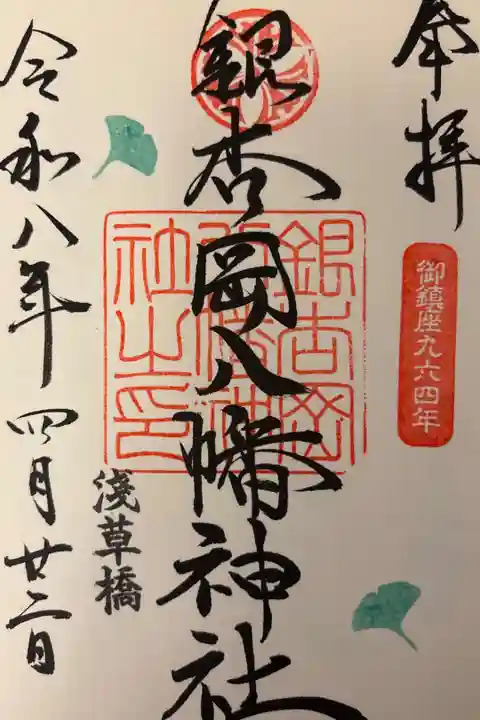 奉拝
御鎮座九六四年
銀杏岡八幡神社
銀杏岡
八幡神
社之印
浅草橋
令和八年四月廿二日